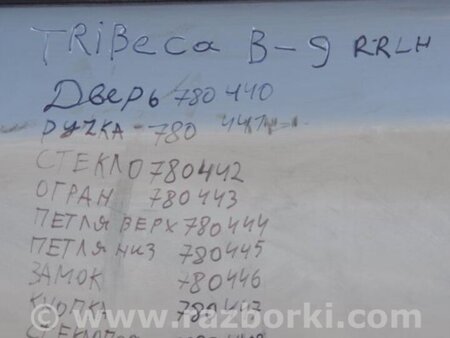 TRiBeca B-9 RRLH
Дверь 780440
РУЧКА -780 441
СТЕКЛО 780442
ОГРАН 780443
ПЕТЛЯ ВЕРХ 780444
ПЕТЛЯ НИЗ 780445
ЗАМОК 780446
КНОПКА 780447
© www.razborki.com